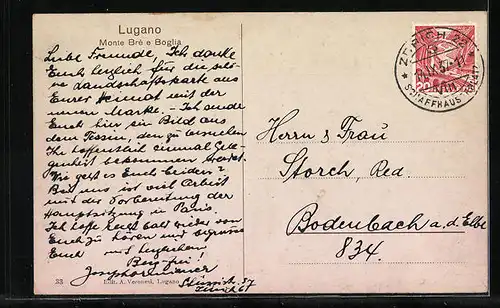 Lugano
Monte Brè e Boglia
Liebe Freunde, Ich danke
Euch herzlich für die schö-
ne Landschaftskarte aus
Eurer Heimat mit der
neuen Marke. - Ich sende
Euch hier ein Bild aus
dem Tessin, den zu besuchen
Ihr hoffentlich einmal Gele-
genheit bekommen werdet.
Wie geht es Euch beiden?
Bei uns ist viel Arbeit
mit der Vorbereitung der
Hauptsitzung in Paris
Ich hoffe recht bald wieder von
Euch zu hören
Euch mit herzlichem
Berg frei!
33 Edit. A. Veronesi, Lugano
57
ZÜRICH
SCHAFFHAUS
Herrn & Frau
Storch, Red.
Bodenbach a.d. Elbe
834.